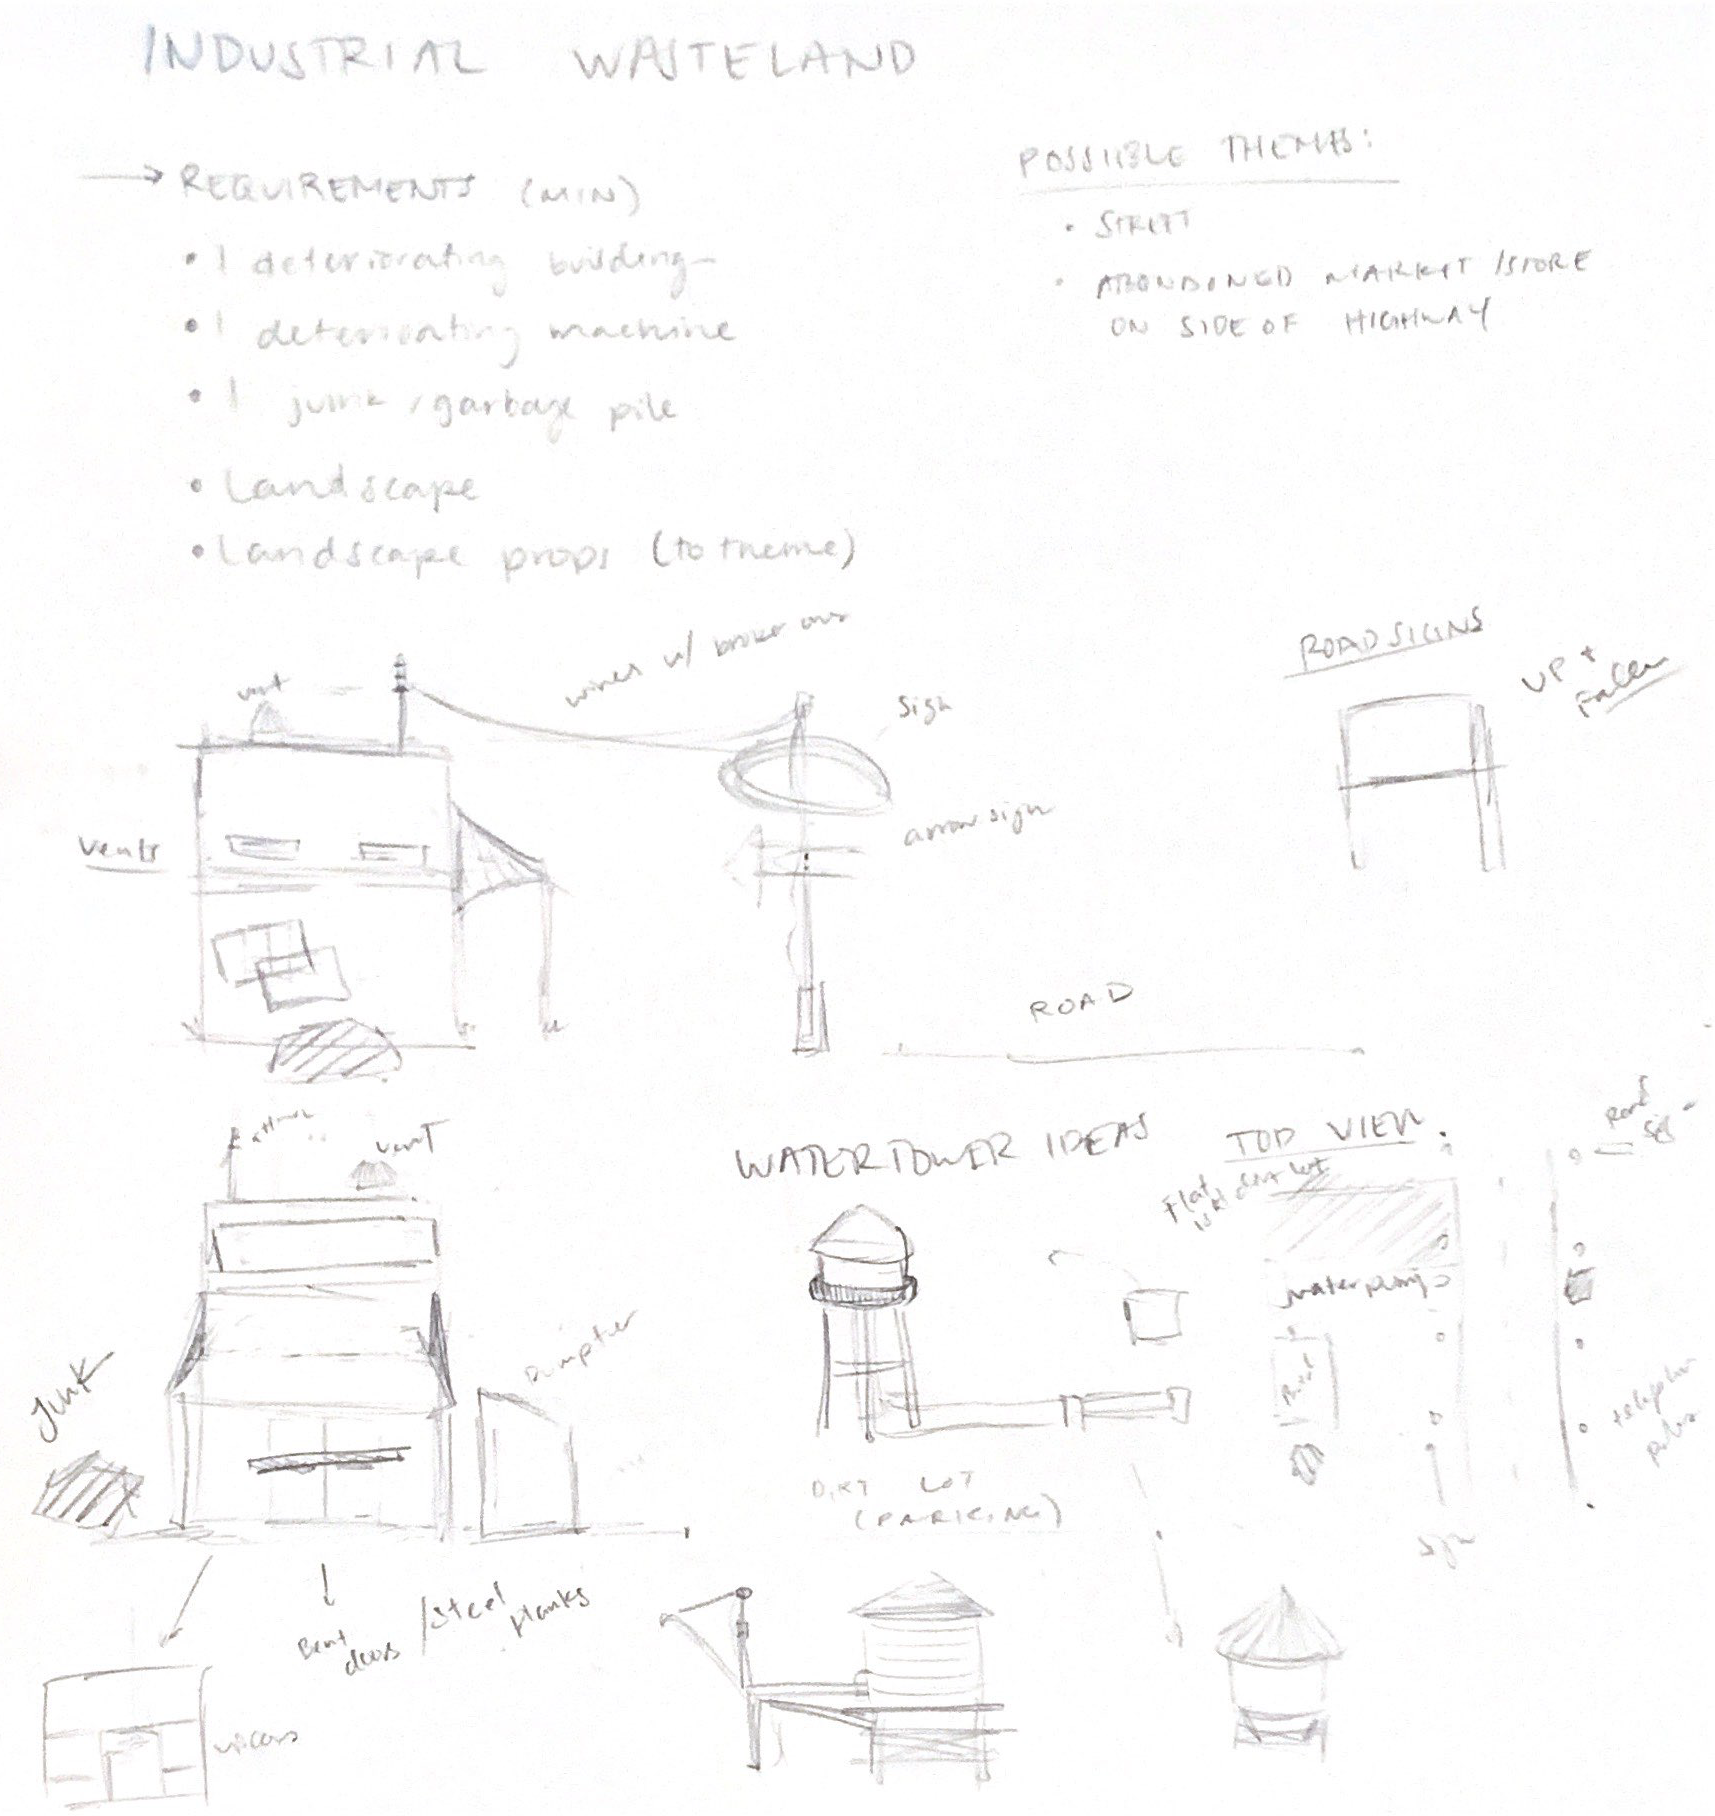 INDUSTRIAL WASTELAND
→ REQUIREMENTS (MIN)
• 1 deteriorating building
• 1 deteriorating machine
• 1 junk/garbage pile
• Landscape
• Landscape props (to theme)
POSSIBLE THEMES:
• STREET
• ABONDONED MARKET/STORE
ON SIDE OF HIGHWAY
wires w/ broke
vent
sign
ROAD SIGNS
UP +
Fallen
vents
arrow sign
ROAD
vent
WATERTOWER IDEAS
TOP VIEW
Road
Flat
dirt lot
Junk
Dumpster
DIRT LOT
(PARKING)
sign
Bent
doors
/steel
planks